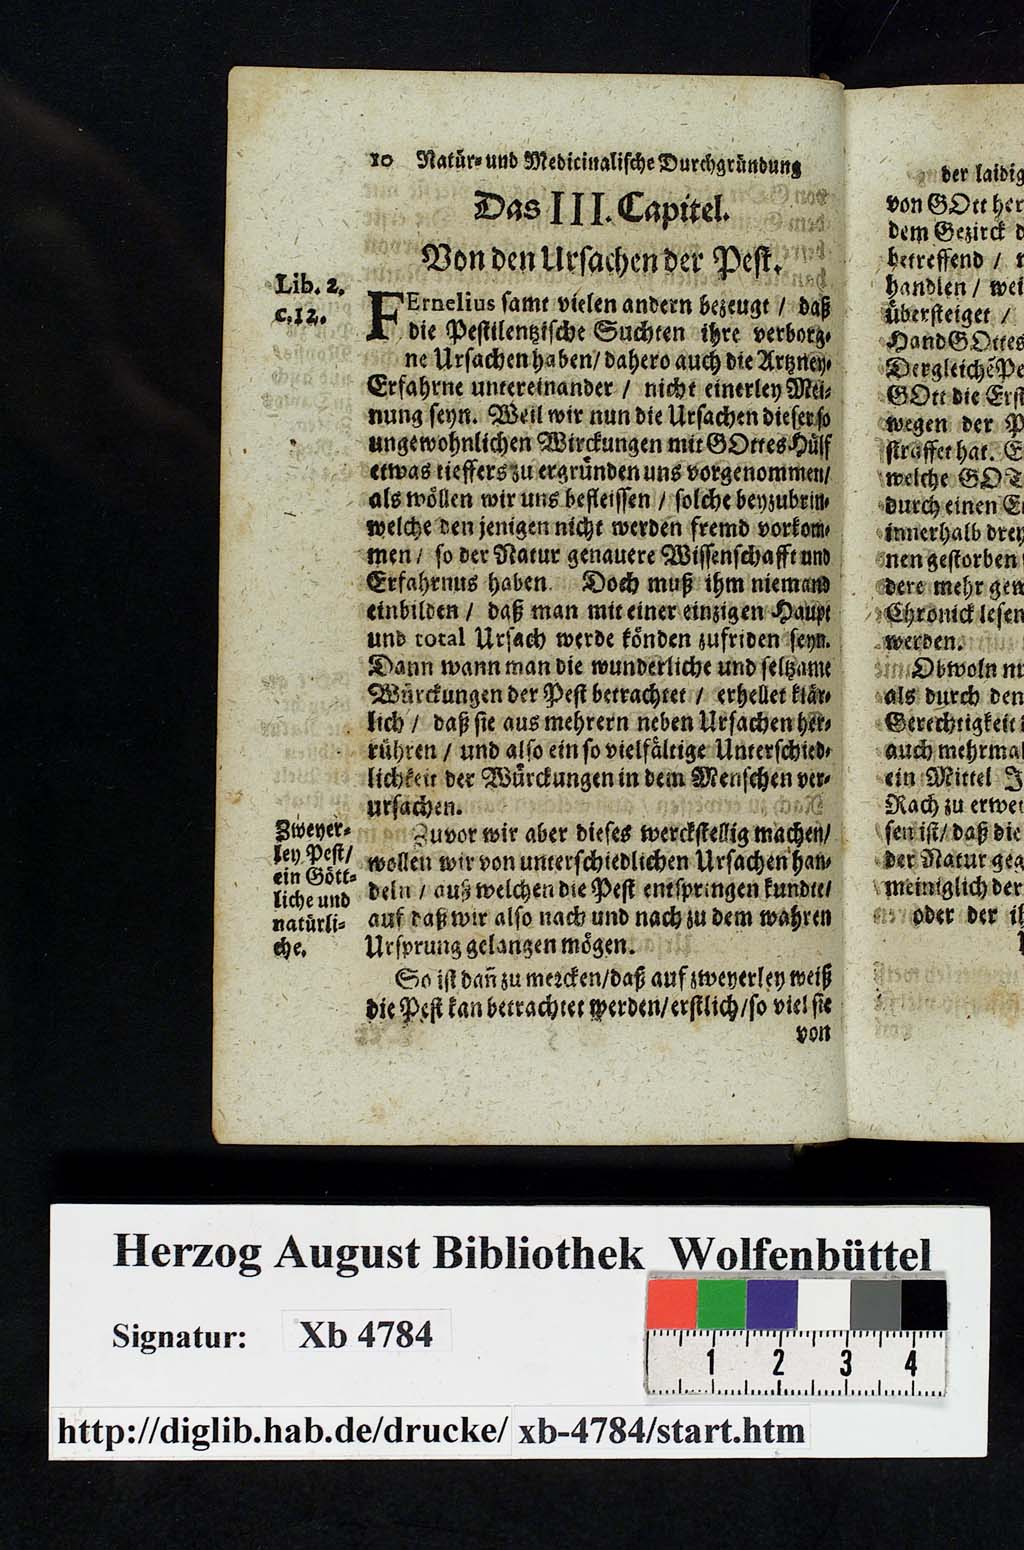 10 Natür- und Medicinalische Durchgründung
Das III. Capitel.
Von den Ursachen der Pest.
Lib. 2.
c.12.
FErnelius samt vielen andern bezeugt / daß
die Pestilentzische Suchten ihre verborg-
ne Ursachen haben / dahero auch die Artzney-
Erfahrne untereinander / nicht einerley Mei-
nung seyn. Weil wir nun die Ursachen dieser so
ungewohnlichen Wirckungen mit GOttes Hülff
etwas tieffers zu ergründen uns vorgenommen /
als wöllen wir uns befleissen / solche beyzubrin-
welche den jenigen nicht werden fremd vorkom-
men / so der Natur genauere Wissenschafft und
Erfahrnus haben. Doch muß ihm niemand
einbilden / daß man mit einer einzigen Haupt
und total Ursach werde könden zufriden seyn.
Dann wann man die wunderliche und seltzame
Würckungen der Pest betrachtet / erhellet klär-
lich / daß sie aus mehrern neben Ursachen her-
rühren / und also ein so vielfältige Unterschied-
lichkeit der Würckungen in dem Menschen ver-
ursachen.
Zweyer-
ley Pest /
ein Gött-
liche und
natürli-
che.
Zuvor wir aber dieses werckstellig machen /
wollen wir von unterschiedlichen Ursachen han-
deln / auß welchen die Pest entspringen kundte /
auf daß wir also nach und nach zu dem wahren
Ursprung gelangen mögen.
So ist dañ zu mercken / daß auf zweyerley weiß
die Pest kan betrachtet werden / erstlich / so viel sie
von
der laidig
von GOtt her
dem Gezirck d
betreffend /
handlen / wei
übersteiget /
Hand GOttes
Dergleichē Pe
GOtt die Erst
wegen der P
straffet hat. E
welche GOT
durch einen En
innerhalb drey
nen gestorben
dere mehr gew
Chronick lesen
werden.
Obwoln nu
als durch den
Gerechtigkeit
auch mehrmal
ein Mittel J
Rach zu erwei
sen ist / daß die
der Natur geg
meiniglich der
oder der ih
Herzog August Bibliothek Wolfenbüttel
Signatur: Xb 4784
1 2 3 4
http://diglib.hab.de/drucke/ xb-4784/start.htm